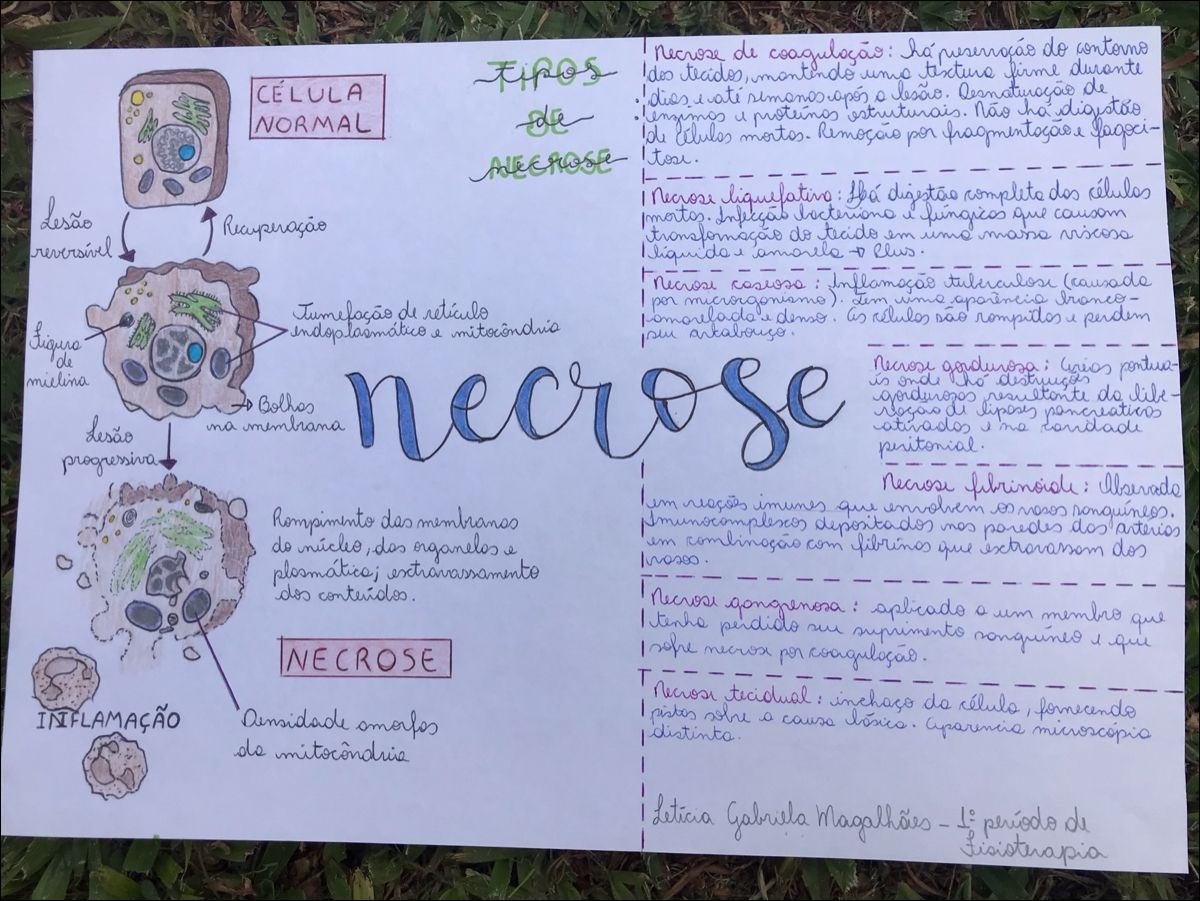 CÉLULA
NORMAL
Lesão
reversível
Recuperação
Tumefação de retículo
endoplasmático e mitocôndria
Figura
de
mielina
Bolhas
na membrana
Lesão
progressiva
Rompimento das membranas
do núcleo, das organelas e
plasmática; extravassamento
dos conteúdos.
NECROSE
INFLAMAÇÃO
Densidade amorfas
da mitocôndria
necrose
TIPOS
tipos
DE
de
NECROSE
necrose
Necrose de coagulação: há preservação do contorno
dos tecidos, mantendo uma textura firme durante
dias e até semanas após a lesão. Desnaturação de
enzimas e proteínas estruturais. Não há digestão
de células mortas. Remoção por fragmentação e fagoci-
tose.
Necrose liquefativa: Há digestão completa das células
mortas. Infecção bacteriana e fúngicas que causam
transformação do tecido em uma massa viscosa
líquida e amarela → Pus.
Necrose caseosa: Inflamação tuberculose (causada
por microrganismo). Tem uma aparência branco-
amarelada e densa. As células são rompidas e perdem
seu arcabouço.
Necrose gordurosa: Áreas pontua-
is onde há destruições
gordurosas resultante da libe-
ração de lipases pancreáticas
ativadas e na cavidade
peritonial.
Necrose fibrinoide: Observada
em reações imunes que envolvem os vasos sanguíneos.
Imunocomplexos depositados nas paredes das artérias
em combinação com fibrinas que extravassam dos
vasos.
Necrose gangrenosa: aplicado a um membro que
tenha perdido seu suprimento sanguíneo e que
sofre necrose por coagulação.
Necrose tecidual: inchaço da célula, fornecendo
pistas sobre a causa básica. Aparencia microscópia
distinta.
Letícia Gabriela Magalhães - 1º período de
Fisioterapia